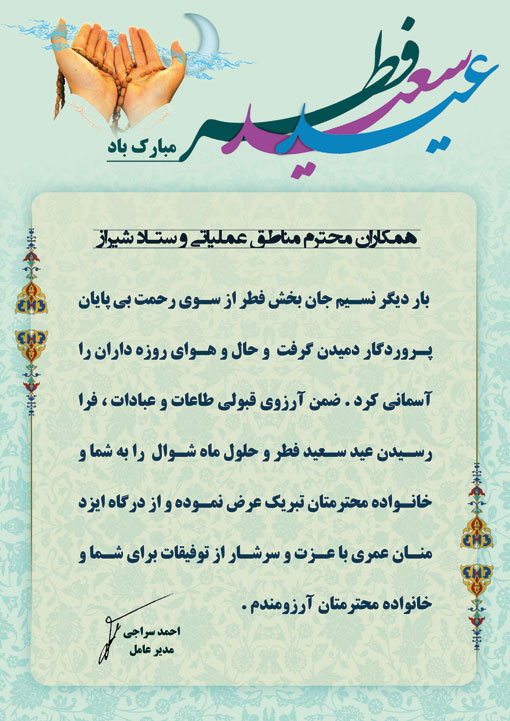 عید سعید فطر
مبارک باد
همکاران محترم مناطق عملیاتی و ستاد شیراز
بار دیگر نسیم جان بخش فطر از سوی رحمت بی پایان
پروردگار دمیدن گرفت و حال و هوای روزه داران را
آسمانی کرد . ضمن آرزوی قبولی طاعات و عبادات ، فرا
رسیدن عید سعید فطر و حلول ماه شوال را به شما و
خانواده محترمتان تبریک عرض نموده و از درگاه ایزد
منان عمری با عزت و سرشار از توفیقات برای شما و
خانواده محترمتان آرزومندم .
احمد سراجی
مدیر عامل